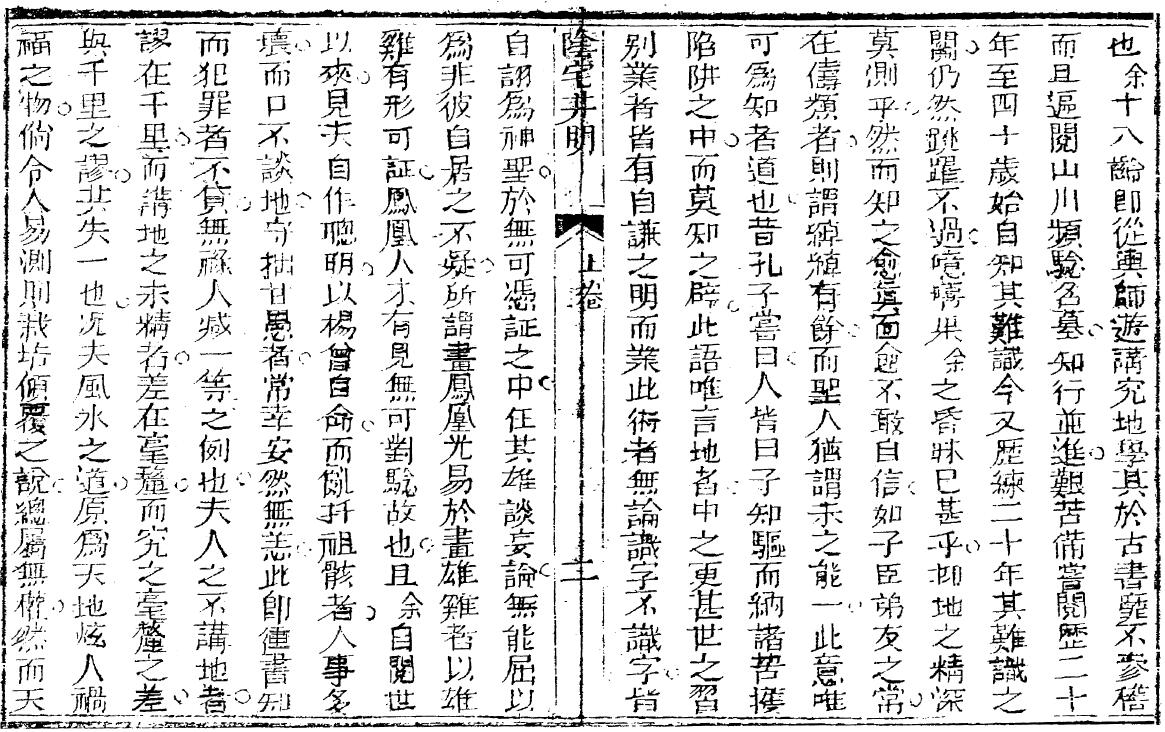 也余十八齡即從輿師遊講究地學其於古書靡不參稽
而且遍閱山川頻驗名墓知行並進艱苦備嘗閱歷二十
年至四十歲始自知其難識今又歷練二十年其難識之
關仍然跳躍不過噫嘻果余之昏昧已甚乎抑地之精深
莫測乎然而知之愈真而愈不敢自信如子臣弟友之常
在儔類者則謂綽綽有餘而聖人猶謂未之能一此意唯
可為知者道也昔孔子嘗曰人皆曰予知驅而納諸罟擭
陷阱之中而莫知之辟此語唯言地者中之更甚世之習
別業者皆有自謙之明而業此術者無論識字不識字皆
陰宅井明 上卷 二
自詡為神聖於無可憑証之中任其雄談妄論無能屈以
為非彼自居之不疑所謂畫鳳凰光易於畫雄雞者以雄
雞有形可証鳳凰人才有見無可對驗故也且余自閱世
以來見夫自作聰明以楊曾自命而亂扦祖骸者人事多
壞而口不談地守拙甘愚者常幸安然無恙此即律書知
而犯罪者不貸無祿人減一等之例也夫人之不講地者
謬在千里而講地之未精者差在毫釐而究之毫釐之差
與千里之謬其失一也况夫風水之道原為天地炫人禍
福之物倘令人易測則栽培傾覆之說總屬無權然而天